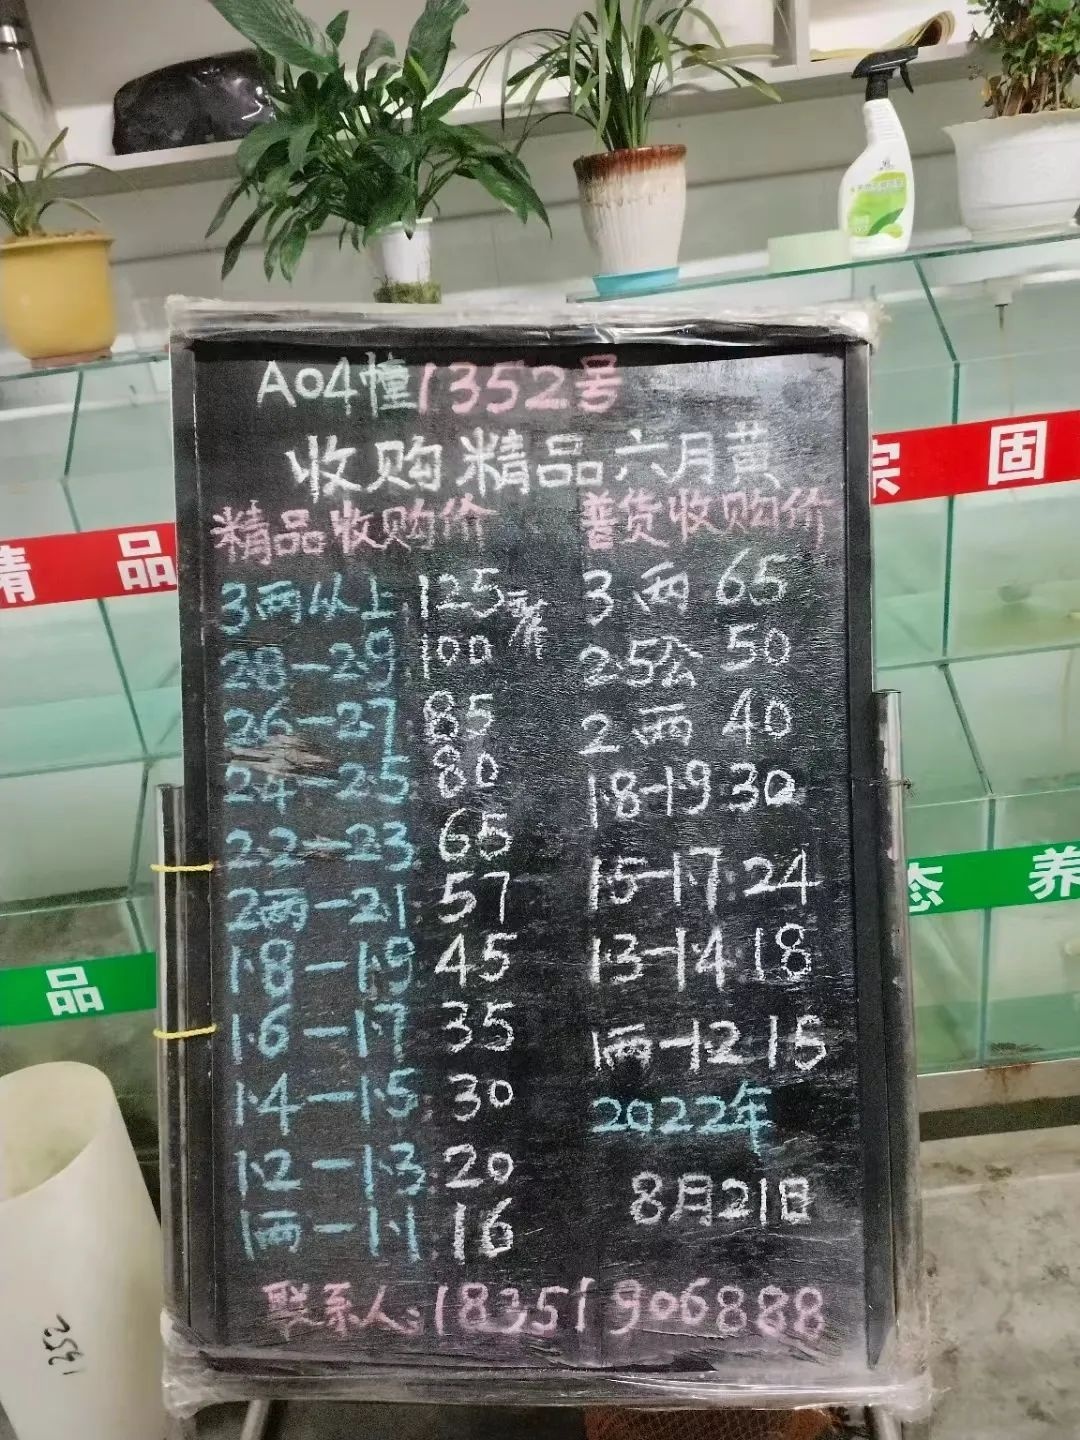 A04幢1352号
收购精品六月黄
精品收购价 普货收购价
3两以上 125 3两 65
2.8-2.9 100 2.5公 50
2.6-2.7 85 2两 40
2.4-2.5 80 1.8-1.9 30
2.2-2.3 65 1.5-1.7 24
2两-2.1 57 1.3-1.4 18
1.8-1.9 45 1两-1.2 15
1.6-1.7 35
1.4-1.5 30 2022年
1.2-1.3 20 8月21日
1两-1.1 16
联系人:18351906888
宗固
精品
态养
品
1352